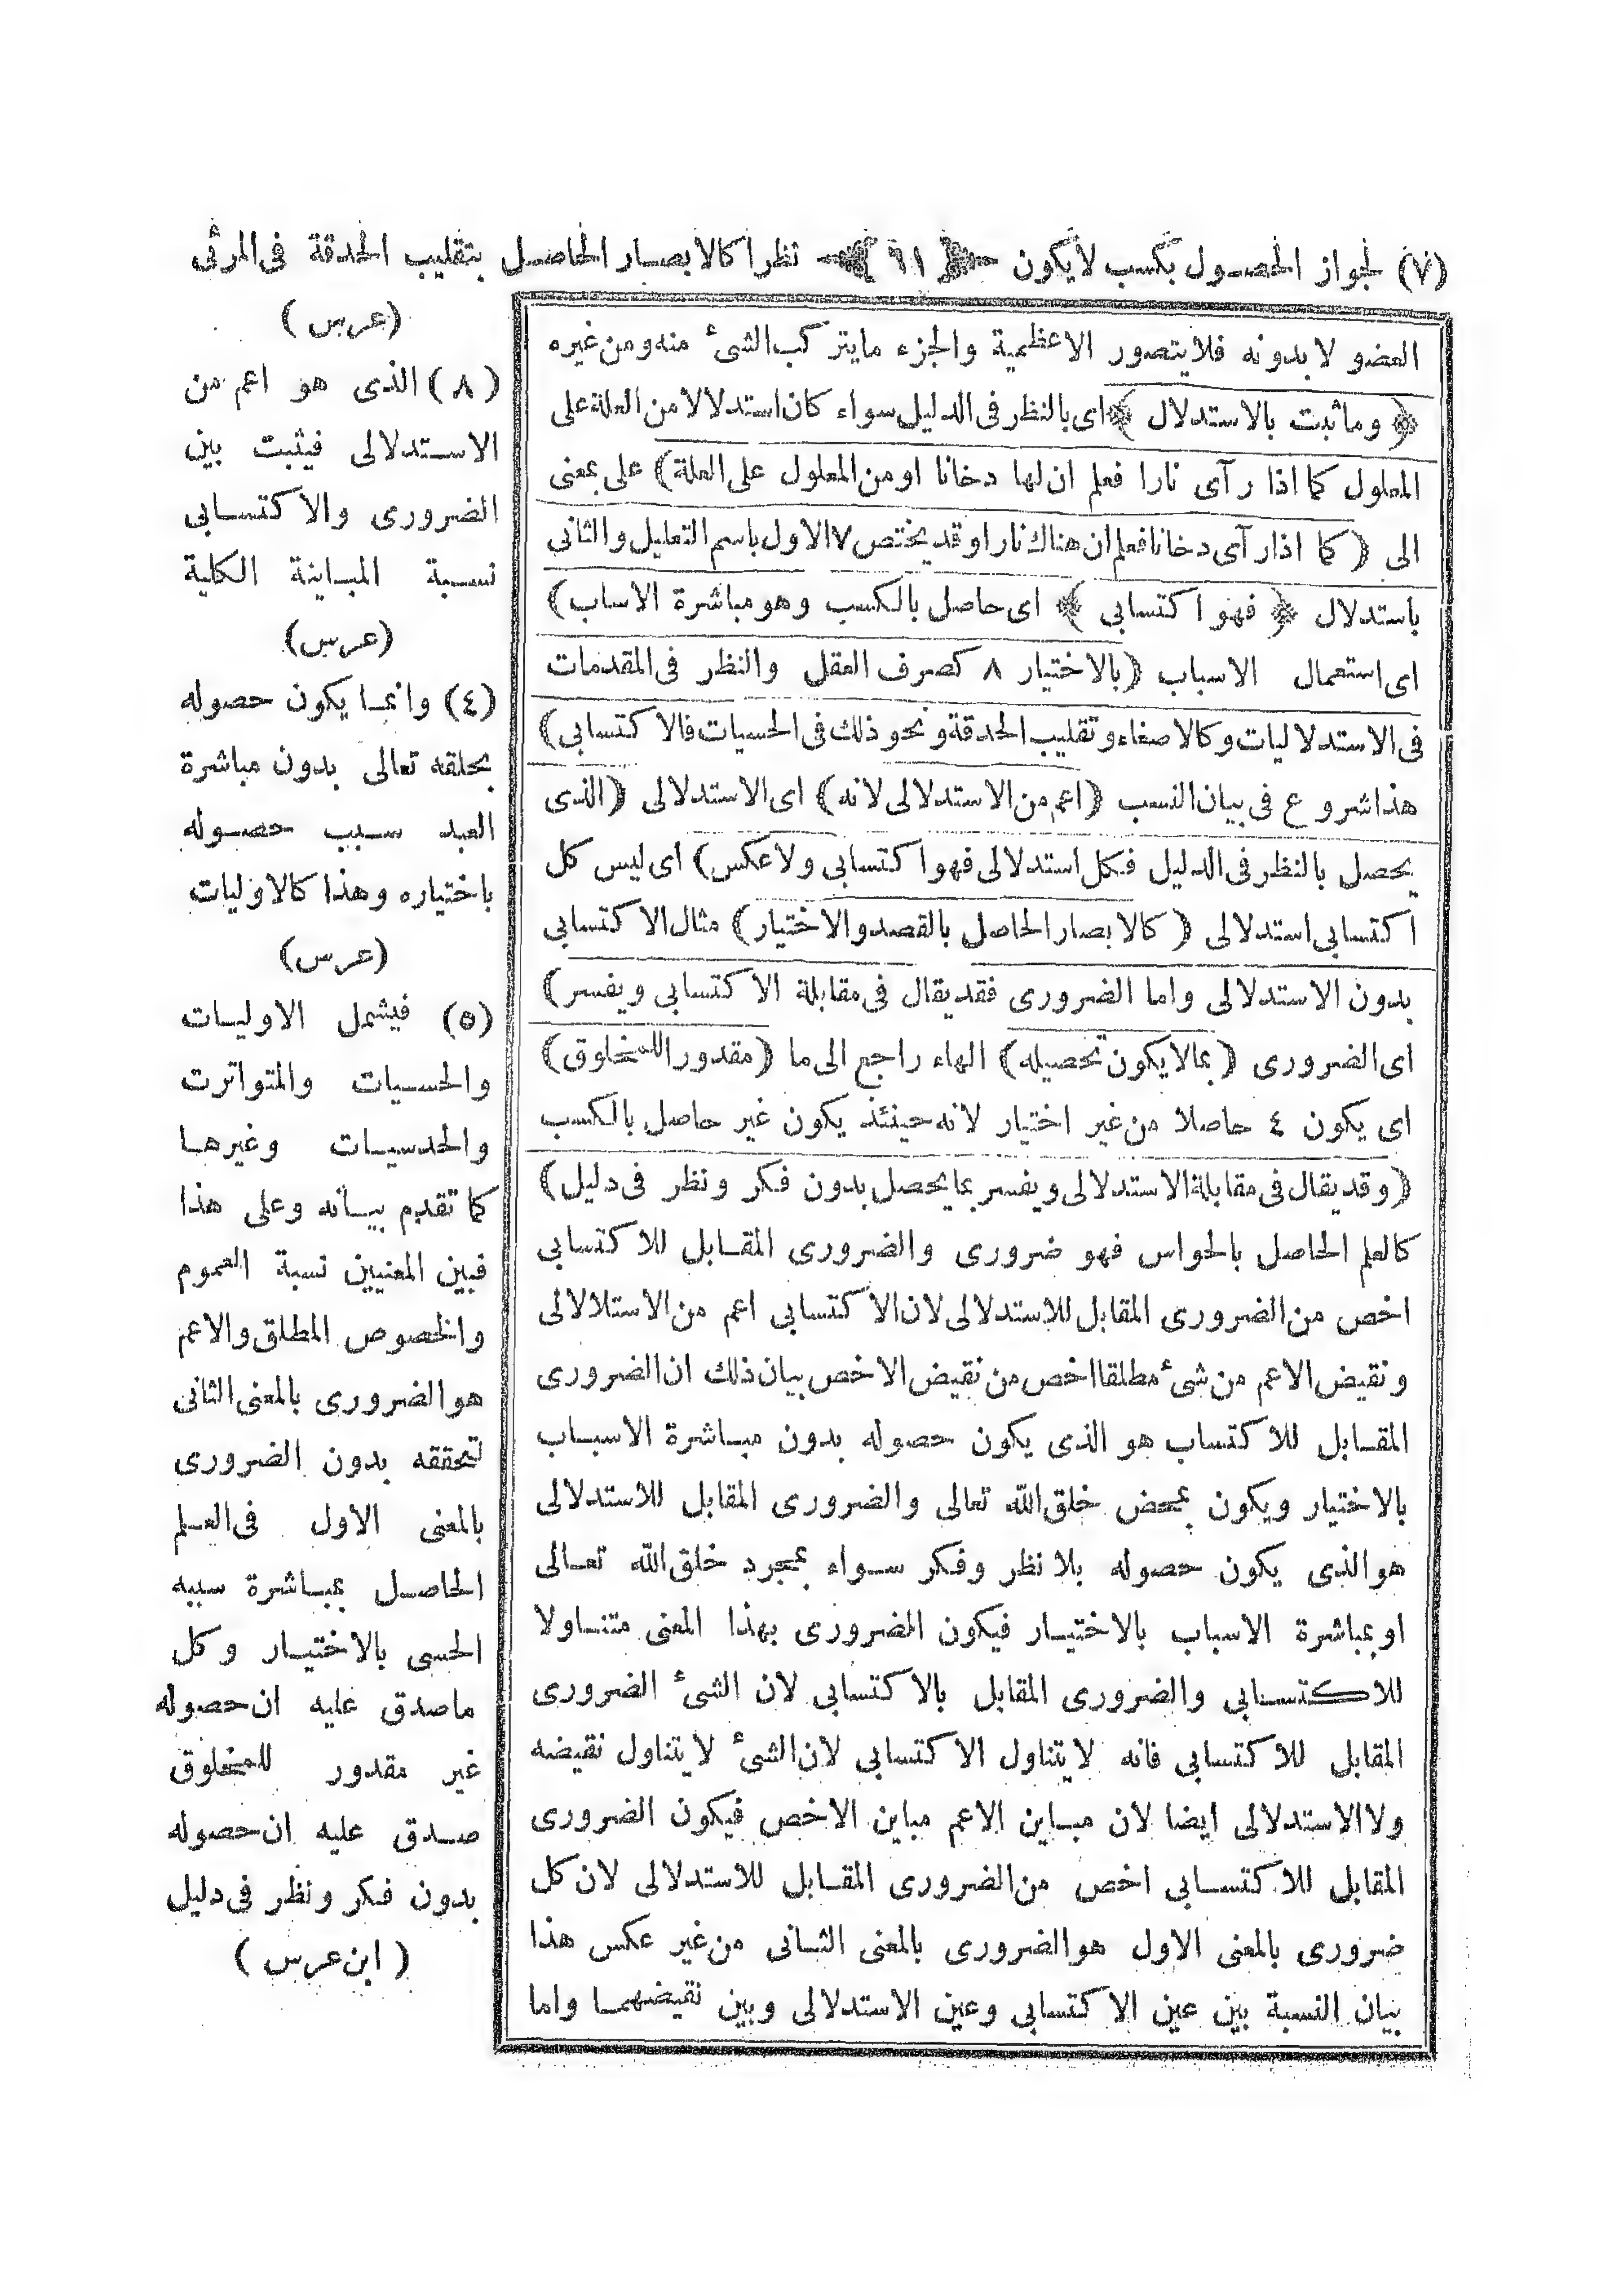 (٧) لجواز الحصول بكسب لايكون ﴿ ٦١ ﴾ نظرا كالابصار الحاصل بتقليب الحدقة فى المرئى
العضو لابدونه فلايتصور الاعظمية والجزء مايتركب الشئ منه ومن غيره
﴿ وماثبت بالاستدلال ﴾ اى بالنظر فى الدليل سواء كان استدلالا من العلة على
المعلول كما اذا رآى نارا فعلم ان لها دخانا او من المعلول على العلة) على بمعنى
الى ( كما اذا رآى دخانا فعلم ان هناك نارا وقد يختص ٧ الاول باسم التعليل والثانى
باستدلال ﴿ فهو اكتسابى ﴾ اى حاصل بالكسب وهو مباشرة الاساب)
اى استعمال الاسباب (بالاختيار ٨ كصرف العقل والنظر فى المقدمات
فى الاستدلاليات وكالاصغاء وتقليب الحدقة ونحو ذلك فى الحسيات فالاكتسابى)
هذا شروع فى بيان النسب (اعم من الاستدلالى لانه) اى الاستدلالى (الذى
يحصل بالنظر فى الدليل فكل استدلالى فهو اكتسابى ولاعكس) اى ليس كل
اكتسابى استدلالى ( كالابصار الحاصل بالقصد والاختيار) مثال الاكتسابى
بدون الاستدلالى واما الضرورى فقد يقال فى مقابلة الاكتسابى ويفسر)
اى الضرورى (بمالايكون تحصيله) الهاء راجع الى ما (مقدورا للمخلوق)
اى يكون ٤ حاصلا من غير اختيار لانه حينئذ يكون غير حاصل بالكسب
(وقد يقال فى مقابلة الاستدلالى ويفسر بمايحصل بدون فكر ونظر فى دليل)
كالعلم الحاصل بالحواس فهو ضرورى والضرورى المقابل للاكتسابى
اخص من الضرورى المقابل للاستدلالى لان الاكتسابى اعم من الاستلالالى
ونقيض الاعم من شئ مطلقا اخص من نقيض الاخص بيان ذلك ان الضرورى
المقابل للاكتساب هو الذى يكون حصوله بدون مباشرة الاسباب
بالاختيار ويكون بمحض خلق الله تعالى والضرورى المقابل للاستدلالى
هو الذى يكون حصوله بلانظر وفكر سواء بمجرد خلق الله تعالى
او بمباشرة الاسباب بالاختيار فيكون الضرورى بهذا المعنى متناولا
للاكتسابى والضرورى المقابل بالاكتسابى لان الشئ الضرورى
المقابل للاكتسابى فانه لايتناول الاكتسابى لان الشئ لايتناول نقيضه
ولا الاستدلالى ايضا لان مباين الاعم مباين الاخص فيكون الضرورى
المقابل للاكتسابى اخص من الضرورى المقابل للاستدلالى لان كل
ضرورى بالمعنى الاول هو الضرورى بالمعنى الثانى من غير عكس هذا
بيان النسبة بين عين الاكتسابى وعين الاستدلالى وبين نقيضهما واما
(عرس)
(٨) الذى هو اعم من
الاستدلالى فيثبت بين
الضرورى والاكتسابى
نسبة المباينة الكلية
(عرس)
(٤) وانما يكون حصوله
بخلقه تعالى بدون مباشرة
العبد سبب حصوله
باختياره وهذا كالاوليات
(عرس)
(٥) فيشمل الاوليات
والحسيات والمتواترت
والحدسيات وغيرها
كما تقدم بيانه وعلى هذا
فبين المعنيين نسبة العموم
والخصوص المطلق والاعم
هو الضرورى بالمعنى الثانى
لتحققه بدون الضرورى
بالمعنى الاول فى العلم
الحاصل بمباشرة سببه
الحسى بالاختيار وكل
ماصدق عليه ان حصوله
غير مقدور للمخلوق
صدق عليه ان حصوله
بدون فكر ونظر فى دليل
( ابن عرس )